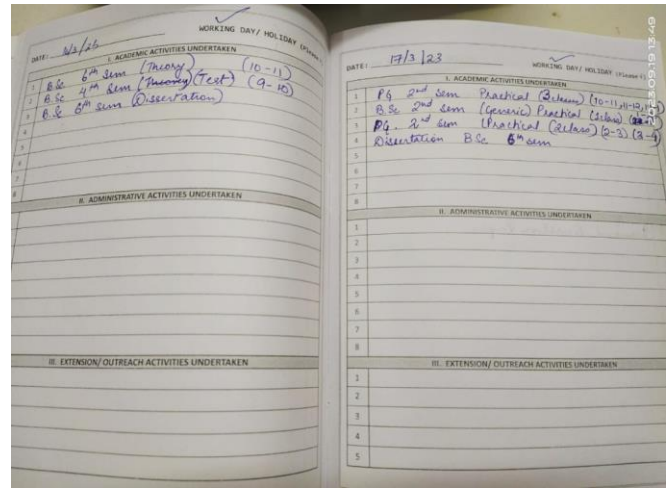 WORKING DAY/ HOLIDAY (Please
DATE:
I. ACADEMIC ACTIVITIES UNDERTAKEN
1 B.Sc 6th Sem (Theory) (10-11)
2 B.Sc 4th Sem (Theory) (Test) (9-10)
3 B.Sc 6th Sem (Dissertation)
4
5
6
7
8
II. ADMINISTRATIVE ACTIVITIES UNDERTAKEN
III. EXTENSION/ OUTREACH ACTIVITIES UNDERTAKEN
DATE: 17/3/23
WORKING DAY/ HOLIDAY (Please
I. ACADEMIC ACTIVITIES UNDERTAKEN
1 PG 2nd Sem Practical (3 class) (10-11, 11-12,
2 B.Sc 2nd Sem (Generic) Practical (1 class)
3 PG. 2nd Sem (Practical (2 class) (2-3) (3-4)
4 Dissertation B Sc 6th sem
5
6
7
8
II. ADMINISTRATIVE ACTIVITIES UNDERTAKEN
1
2
3
4
5
6
7
8
III. EXTENSION/ OUTREACH ACTIVITIES UNDERTAKEN
1
2
3
4
5
2024.09.19 13:49